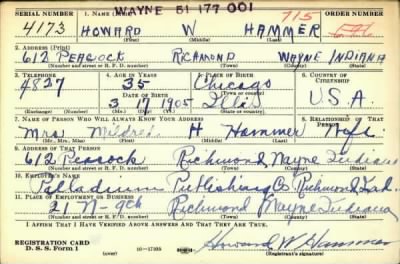 WAYNE 51 177 001
SERIAL NUMBER 1. NAME (Print) ORDER NUMBER
4173 HOWARD W HAMMER 715
(First) (Middle) (Last)
2. ADDRESS (Print)
612 PEACOCK RICHMOND WAYNE INDIANA
(Number and street or R. F. D. number) (Town) (County) (State)
3. TELEPHONE 4. AGE IN YEARS 5. PLACE OF BIRTH 6. COUNTRY OF CITIZENSHIP
4827 35 Chicago
DATE OF BIRTH (Town or county)
3 17 1905 Ills U.S.A.
(Exchange) (Number) (Mo.) (Day) (Yr.) (State or country)
7. NAME OF PERSON WHO WILL ALWAYS KNOW YOUR ADDRESS 8. RELATIONSHIP OF THAT PERSON
Mrs Mildred H Hammer Wife
(Mr., Mrs., Miss) (First) (Middle) (Last)
9. ADDRESS OF THAT PERSON
612 Peacock Richmond Wayne Indiana
(Number and street or R. F. D. number) (Town) (County) (State)
10. EMPLOYER'S NAME
Palladium Publishing Co Richmond Ind.
11. PLACE OF EMPLOYMENT OR BUSINESS
21 N-9th Richmond Wayne Indiana
(Number and street or R. F. D. number) (Town) (County) (State)
I AFFIRM THAT I HAVE VERIFIED ABOVE ANSWERS AND THAT THEY ARE TRUE.
REGISTRATION CARD
D. S. S. Form 1 (over) 16—17105 Howard W Hammer
(Registrant's signature)